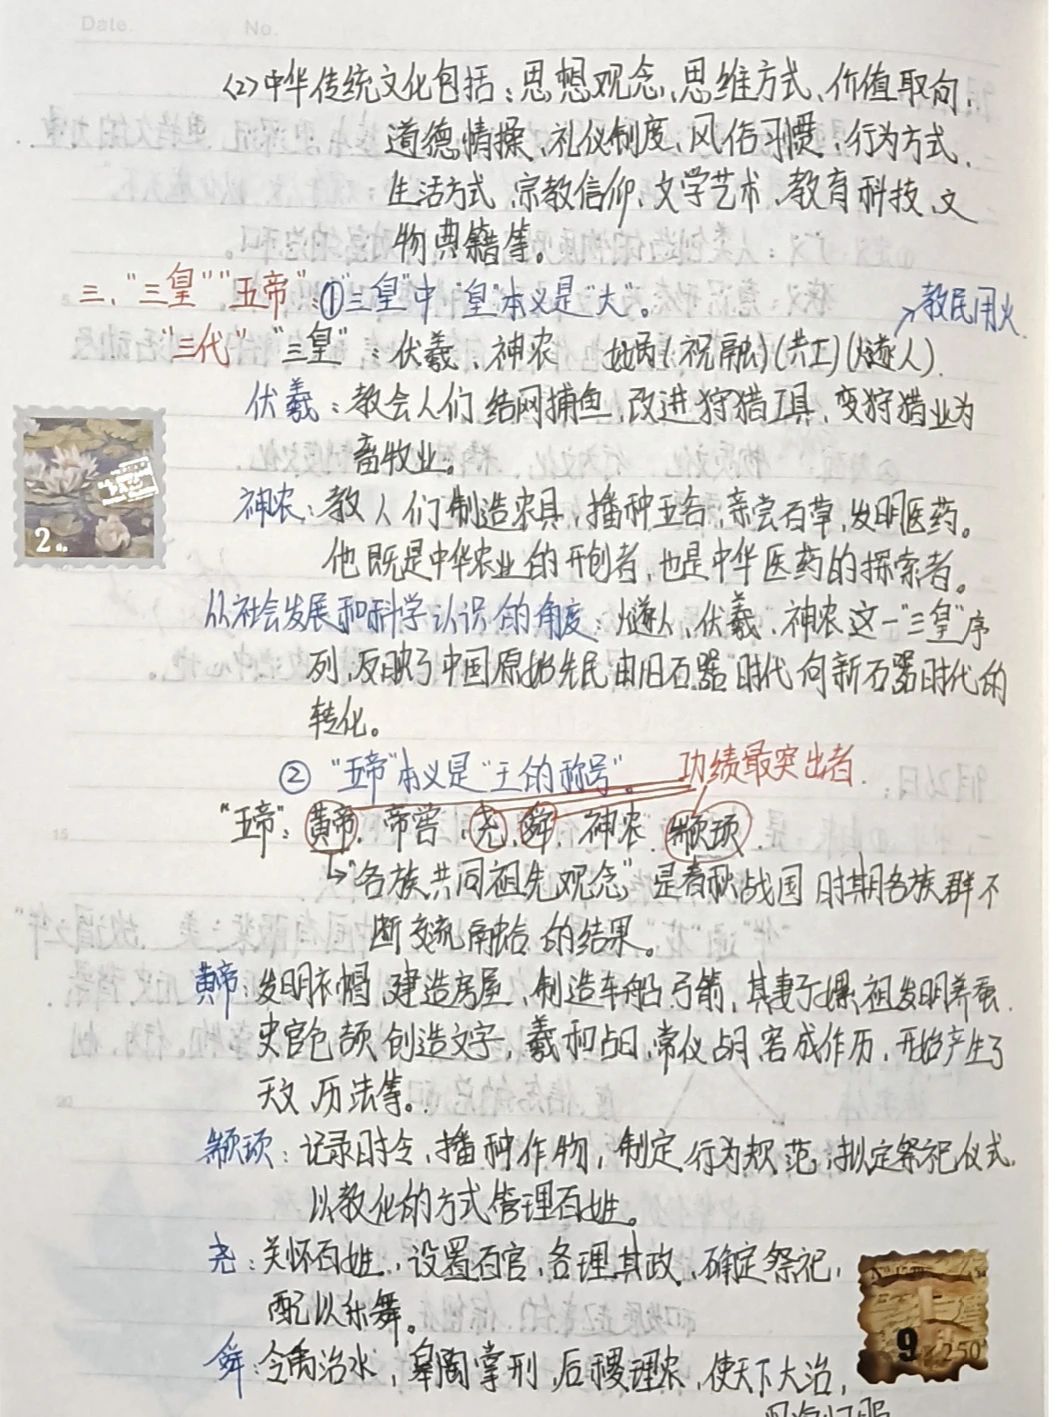 Date.    No.
(2)中华传统文化包括：思想观念、思维方式、价值取向、
道德情操、礼仪制度、风俗习惯、行为方式、
生活方式、宗教信仰、文学艺术、教育科技、文
物典籍等。
三、"三皇""五帝"：①"三皇"中"皇"本义是"大"。
教民用火
"三代" "三皇"：伏羲、神农 女娲(祝融)(共工)(燧人).
伏羲：教会人们结网捕鱼、改进狩猎工具、变狩猎业为
畜牧业。
神农：教人们制造农具，播种五谷，亲尝百草，发明医药。
他既是中华农业的开创者，也是中华医药的探索者。
从社会发展和科学认识的角度：燧人、伏羲、神农这一"三皇"序
列，反映了中国原始先民由旧石器时代向新石器时代的
转化。
②"五帝"本义是"王的称号"。 功绩最突出者.
"五帝"：黄帝、帝喾、尧、舜、神农、颛顼.
"各族共同祖先观念"是春秋战国时期各族群不
断交流融合的结果。
黄帝：发明衣帽、建造房屋、制造车船弓箭，其妻子嫘祖发明养蚕.
史官仓颉创造文字，羲和占日，常仪占月，容成作历，开始产生了
天文、历法等。
颛顼：记录时令、播种作物，制定行为规范，拟定祭祀仪式.
以教化的方式管理百姓。
尧：关怀百姓，设置百官，各理其政、确定祭祀，
配以乐舞。
舜：令禹治水，皋陶掌刑，后稷理农，使天下大治，
2
9
250